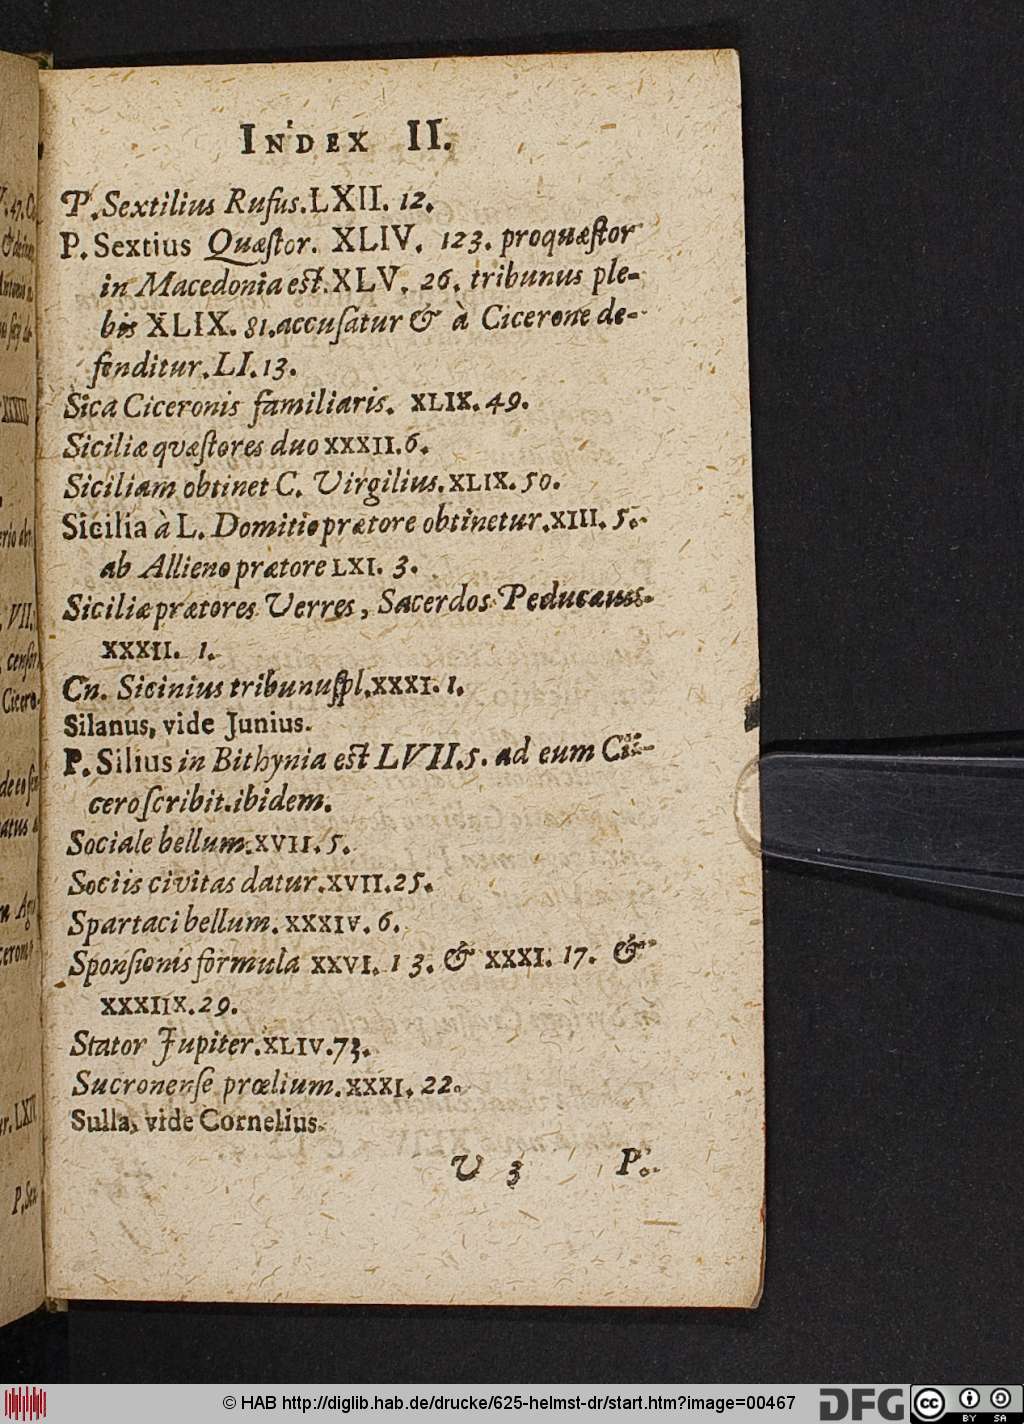 INDEX II.
P. Sextilius Rufus. LXII. 12.
P. Sextius Quæſtor. XLIV. 123. proquæſtor
in Macedonia est. XLV. 26. tribunus ple-
bis XLIX. 81. accuſatur & à Cicerone de-
fenditur. LI. 13.
Sica Ciceronis familiaris. XLIX. 49.
Siciliæ quæſtores duo XXXII. 6.
Siciliam obtinet C. Virgilius. XLIX. 50.
Sicilia à L. Domitio prætore obtinetur. XIII. 5.
ab Allieno prætore LXI. 3.
Siciliæ prætores Verres, Sacerdos Peducæus
XXXII. 1.
Cn. Sicinius tribunus pl. XXXI. 1.
Silanus, vide Junius.
P. Silius in Bithynia est LVII. 5. ad eum Ci-
cero ſcribit. ibidem.
Sociale bellum. XVII. 5.
Sociis civitas datur. XVII. 25.
Spartaci bellum. XXXIV. 6.
Sponſionis formula XXVI. 13. & XXXI. 17. &
XXXIIX. 29.
Stator Jupiter. XLIV. 73.
Sucronenſe prœlium. XXXI. 22.
Sulla, vide Cornelius.
V 3 P.
© HAB http://diglib.hab.de/drucke/625-helmst-dr/start.htm?image=00467 DFG CC BY SA